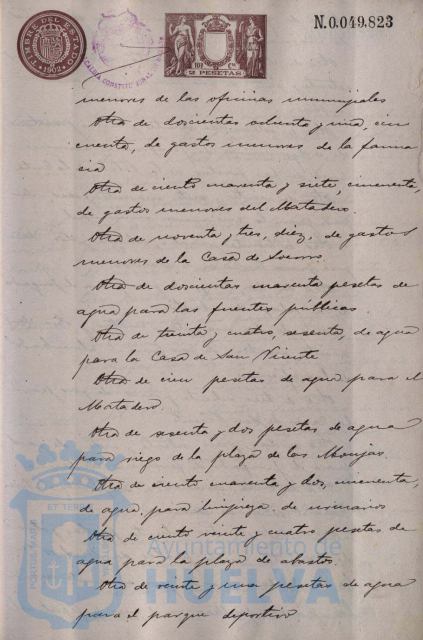 TIMBRE DEL ESTADO
1902
ALCALDIA CONSTITUCIONAL
2 PESETAS
N.0.049.823
menores de las oficinas municipales
Otra de doscientas ochenta y una, cin
cuenta, de gastos menores de la farma
cia
Otra de ciento noventa y siete, cincuenta,
de gastos menores del Matadero.
Otra de noventa y tres, diez, de gastos
menores de la Casa de Socorro.
Otra de doscientas noventa pesetas de
agua para las fuentes públicas.
Otra de treinta y cuatro, sesenta, de agua
para la Casa de San Vicente
Otra de cien pesetas de agua para el
Matadero.
Otra de sesenta y dos pesetas de agua
para riego de la plaza de las Monjas.
Otra de ciento cuarenta y dos, cincuenta,
de agua para limpieza de urinarios
Otra de ciento veinte y cuatro pesetas de
agua para la plaza de abastos
Otra de veinte y una pesetas de agua
para el parque deportivo
PORTUS MARIS
ET TERR
Ayuntamiento de
HUELVA